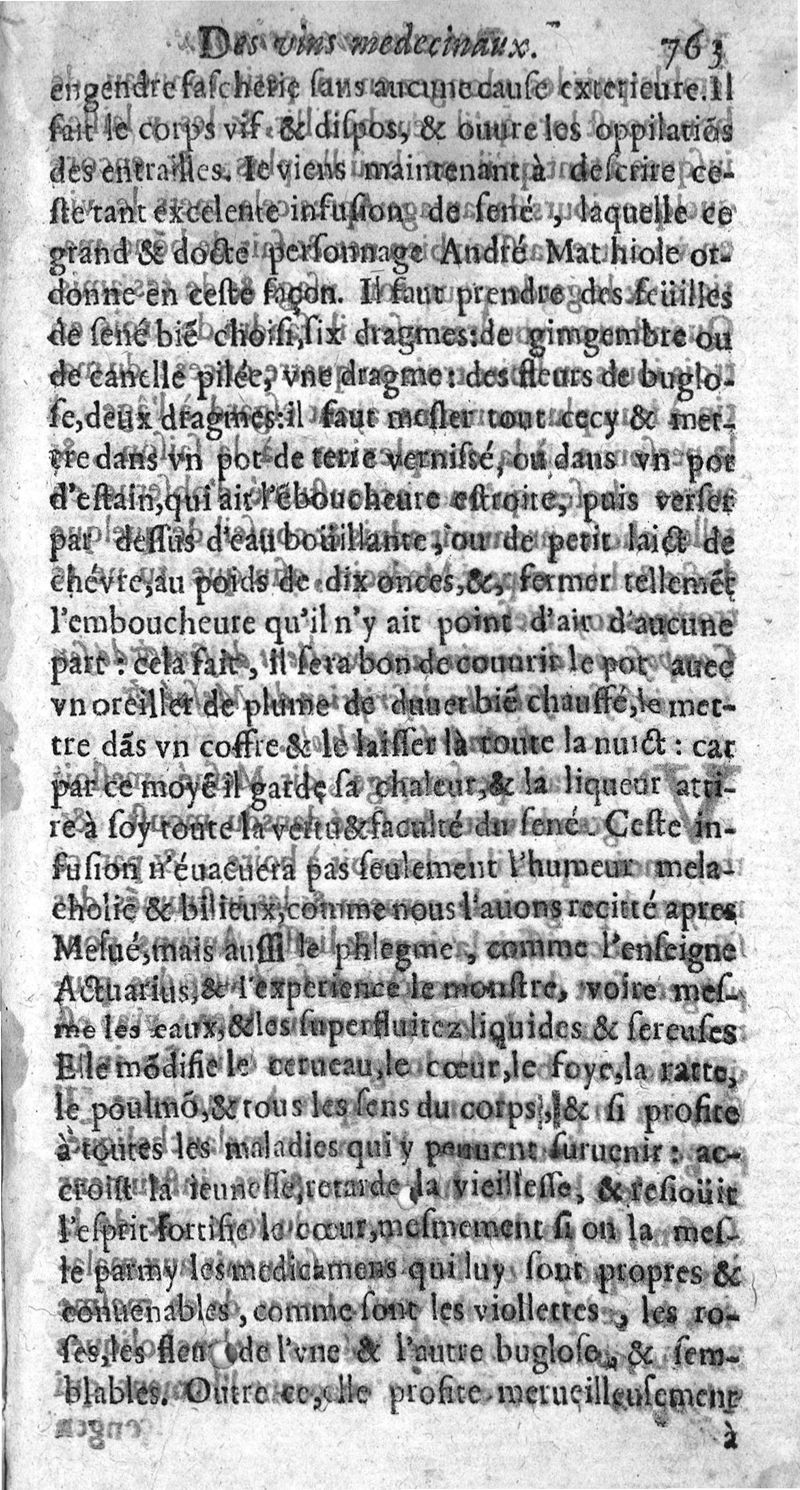 Des vins medecinaux. 763
engendre fascherie sans aucune cause exterieure. Il
fait le corps vif & dispos, & ouure les oppilatiõs
des entrailles. Ie viens maintenant à descrire ce-
ste tant excelente infusion de sené, laquelle ce
grand & docte personnage André Mathiole or-
donne en ceste façon. Il faut prendre des feüilles
de sené biẽ choisi, six dragmes: de gimgembre ou
de canelle pilée, vne dragme: des fleurs de buglo-
se, deux dragmes: il faut mesler tout cecy & met-
tre dans vn pot de terre vernissé, ou dans vn pot
d'estain, qui ait l'ẽboucheure estroite, puis verser
par dessus d'eau boüillante, ou de petit laict de
chévre, au poids de dix onces, &, fermer tellemẽt
l'emboucheure qu'il n'y ait point d'air d'aucune
part: cela fait, il sera bon de couurir le pot auec
vn oreiller de plume de duuet biẽ chauffé, le met-
tre dãs vn coffre & le laisser là toute la nuict: car
par ce moyẽ il garde sa chaleur, & la liqueur atti-
re à soy toute la vertu & faculté du sené. Ceste in-
fusion n'éuacuera pas seulement l'humeur mela-
cholic & bilieux, comme nous l'auons recitté apres
Mesué, mais aussi le phlegme, comme l'enseigne
Actuarius, & l'experience le monstre, voire mes-
me les eaux, & les superfluitez liquides & sereuses
Elle mõdifie le cerueau, le cœur, le foye, la ratte,
le poulmõ, & tous les sens du corps, & si profite
à toutes les maladies qui y peuuent suruenir: ac-
croist la ieunesse, retarde la vieillesse, & resioüit
l'esprit fortifie le cœur, mesmement si on la mes-
le parmy les medicamens qui luy sont propres &
conuenables, comme sont les viollettes, les ro-
ses, les fleu de l'vne & l'autre buglose, & sem-
blables. Outre ce, elle profite merueilleusement
à